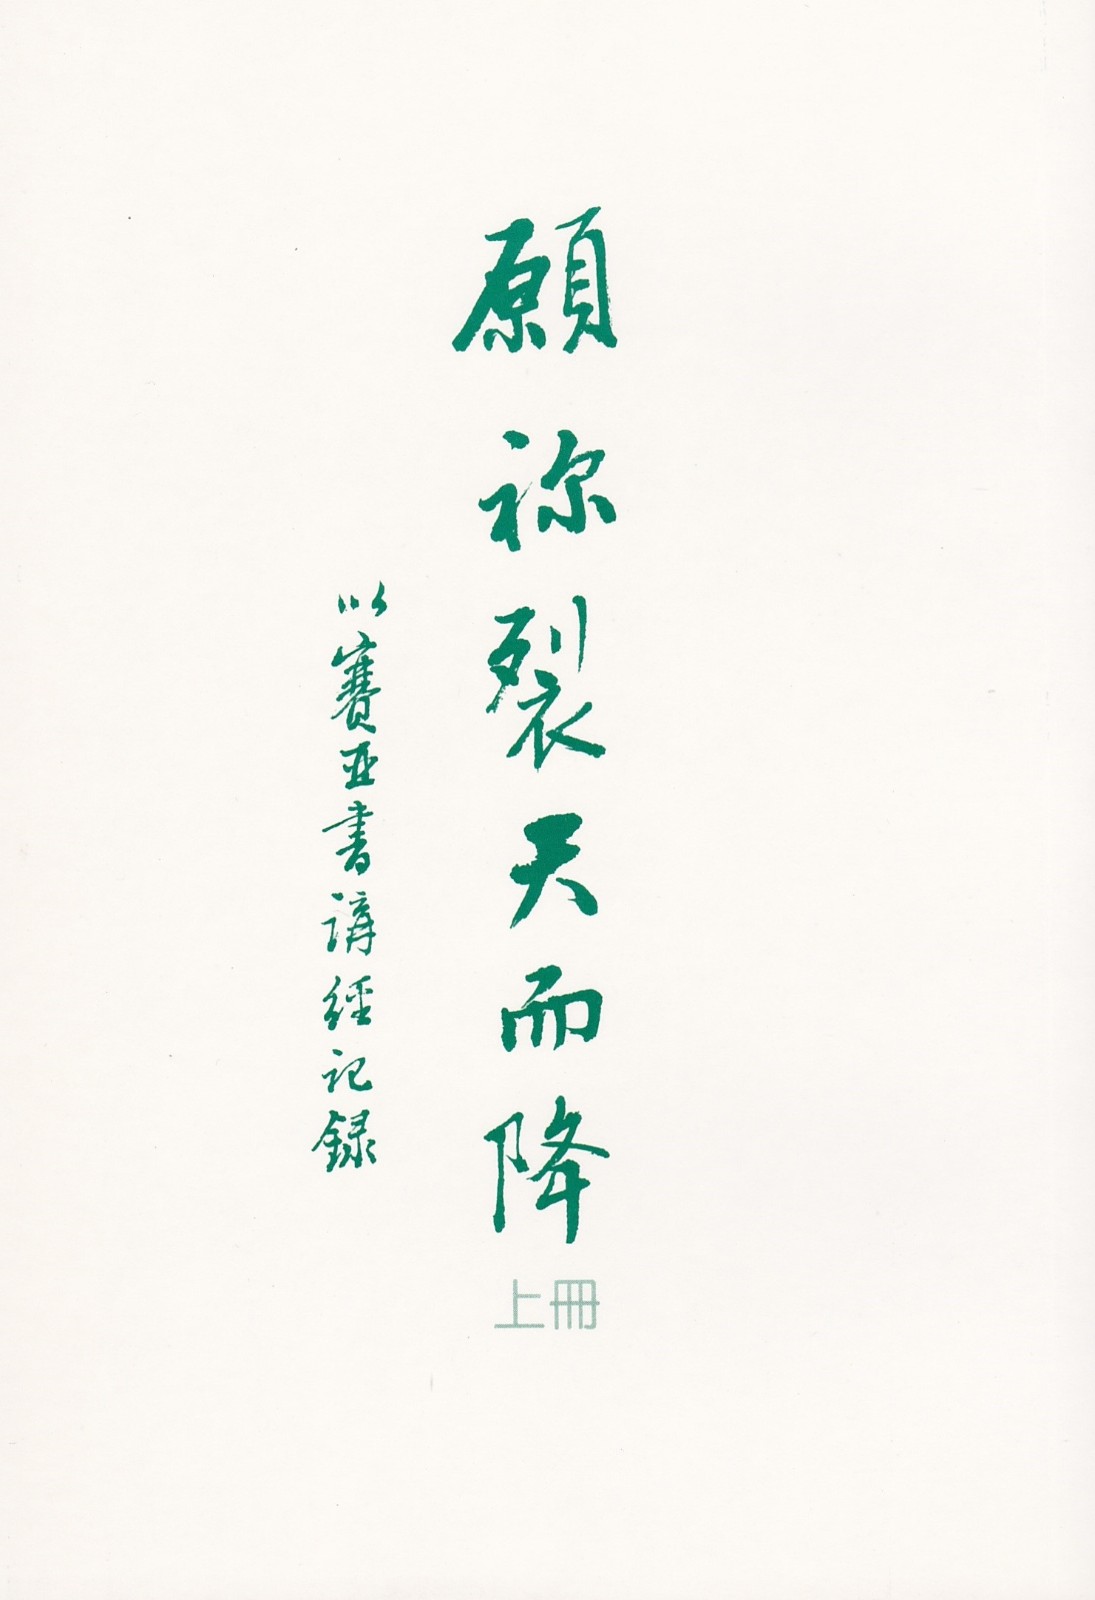 願祢裂天而降
上冊
以賽亞書講經記録